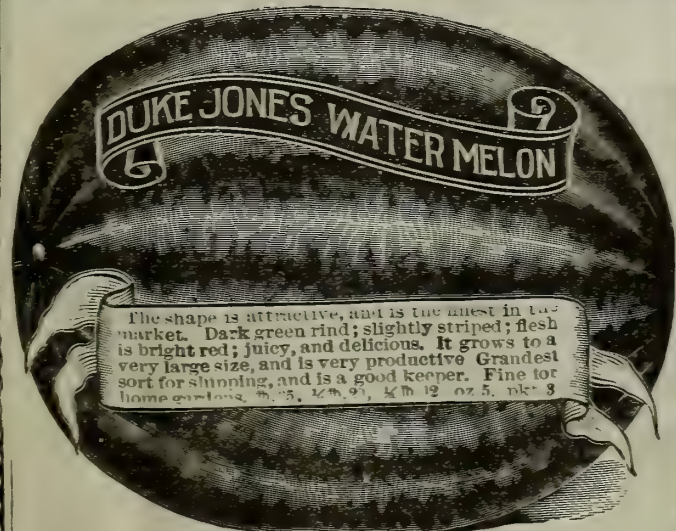 DUKE JONES WATER MELON
The shape is attractive, and is the finest in the
market. Dark green rind; slightly striped; flesh
is bright red; juicy, and delicious. It grows to a
very large size, and is very productive Grandest
sort for shipping, and is a good keeper. Fine for
home gardens. oz 5. pkt 3